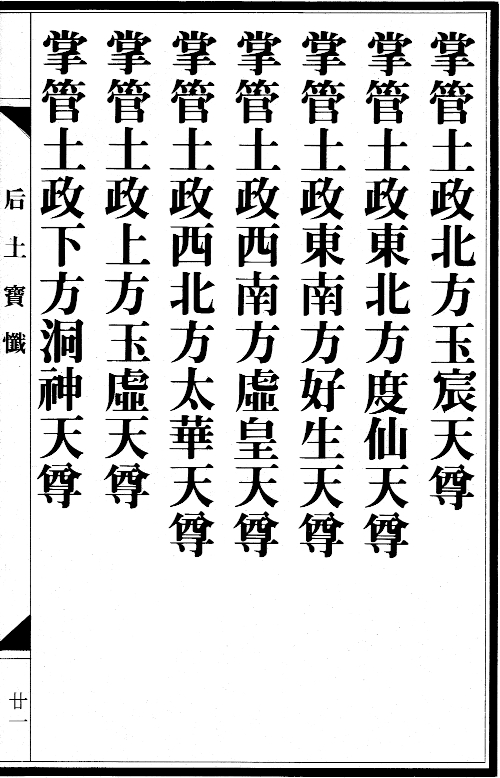 掌管土政北方玉宸天尊
掌管土政東北方度仙天尊
掌管土政東南方好生天尊
掌管土政西南方虛皇天尊
掌管土政西北方太華天尊
掌管土政上方玉虛天尊
掌管土政下方洞神天尊
后土寶懺
廿一